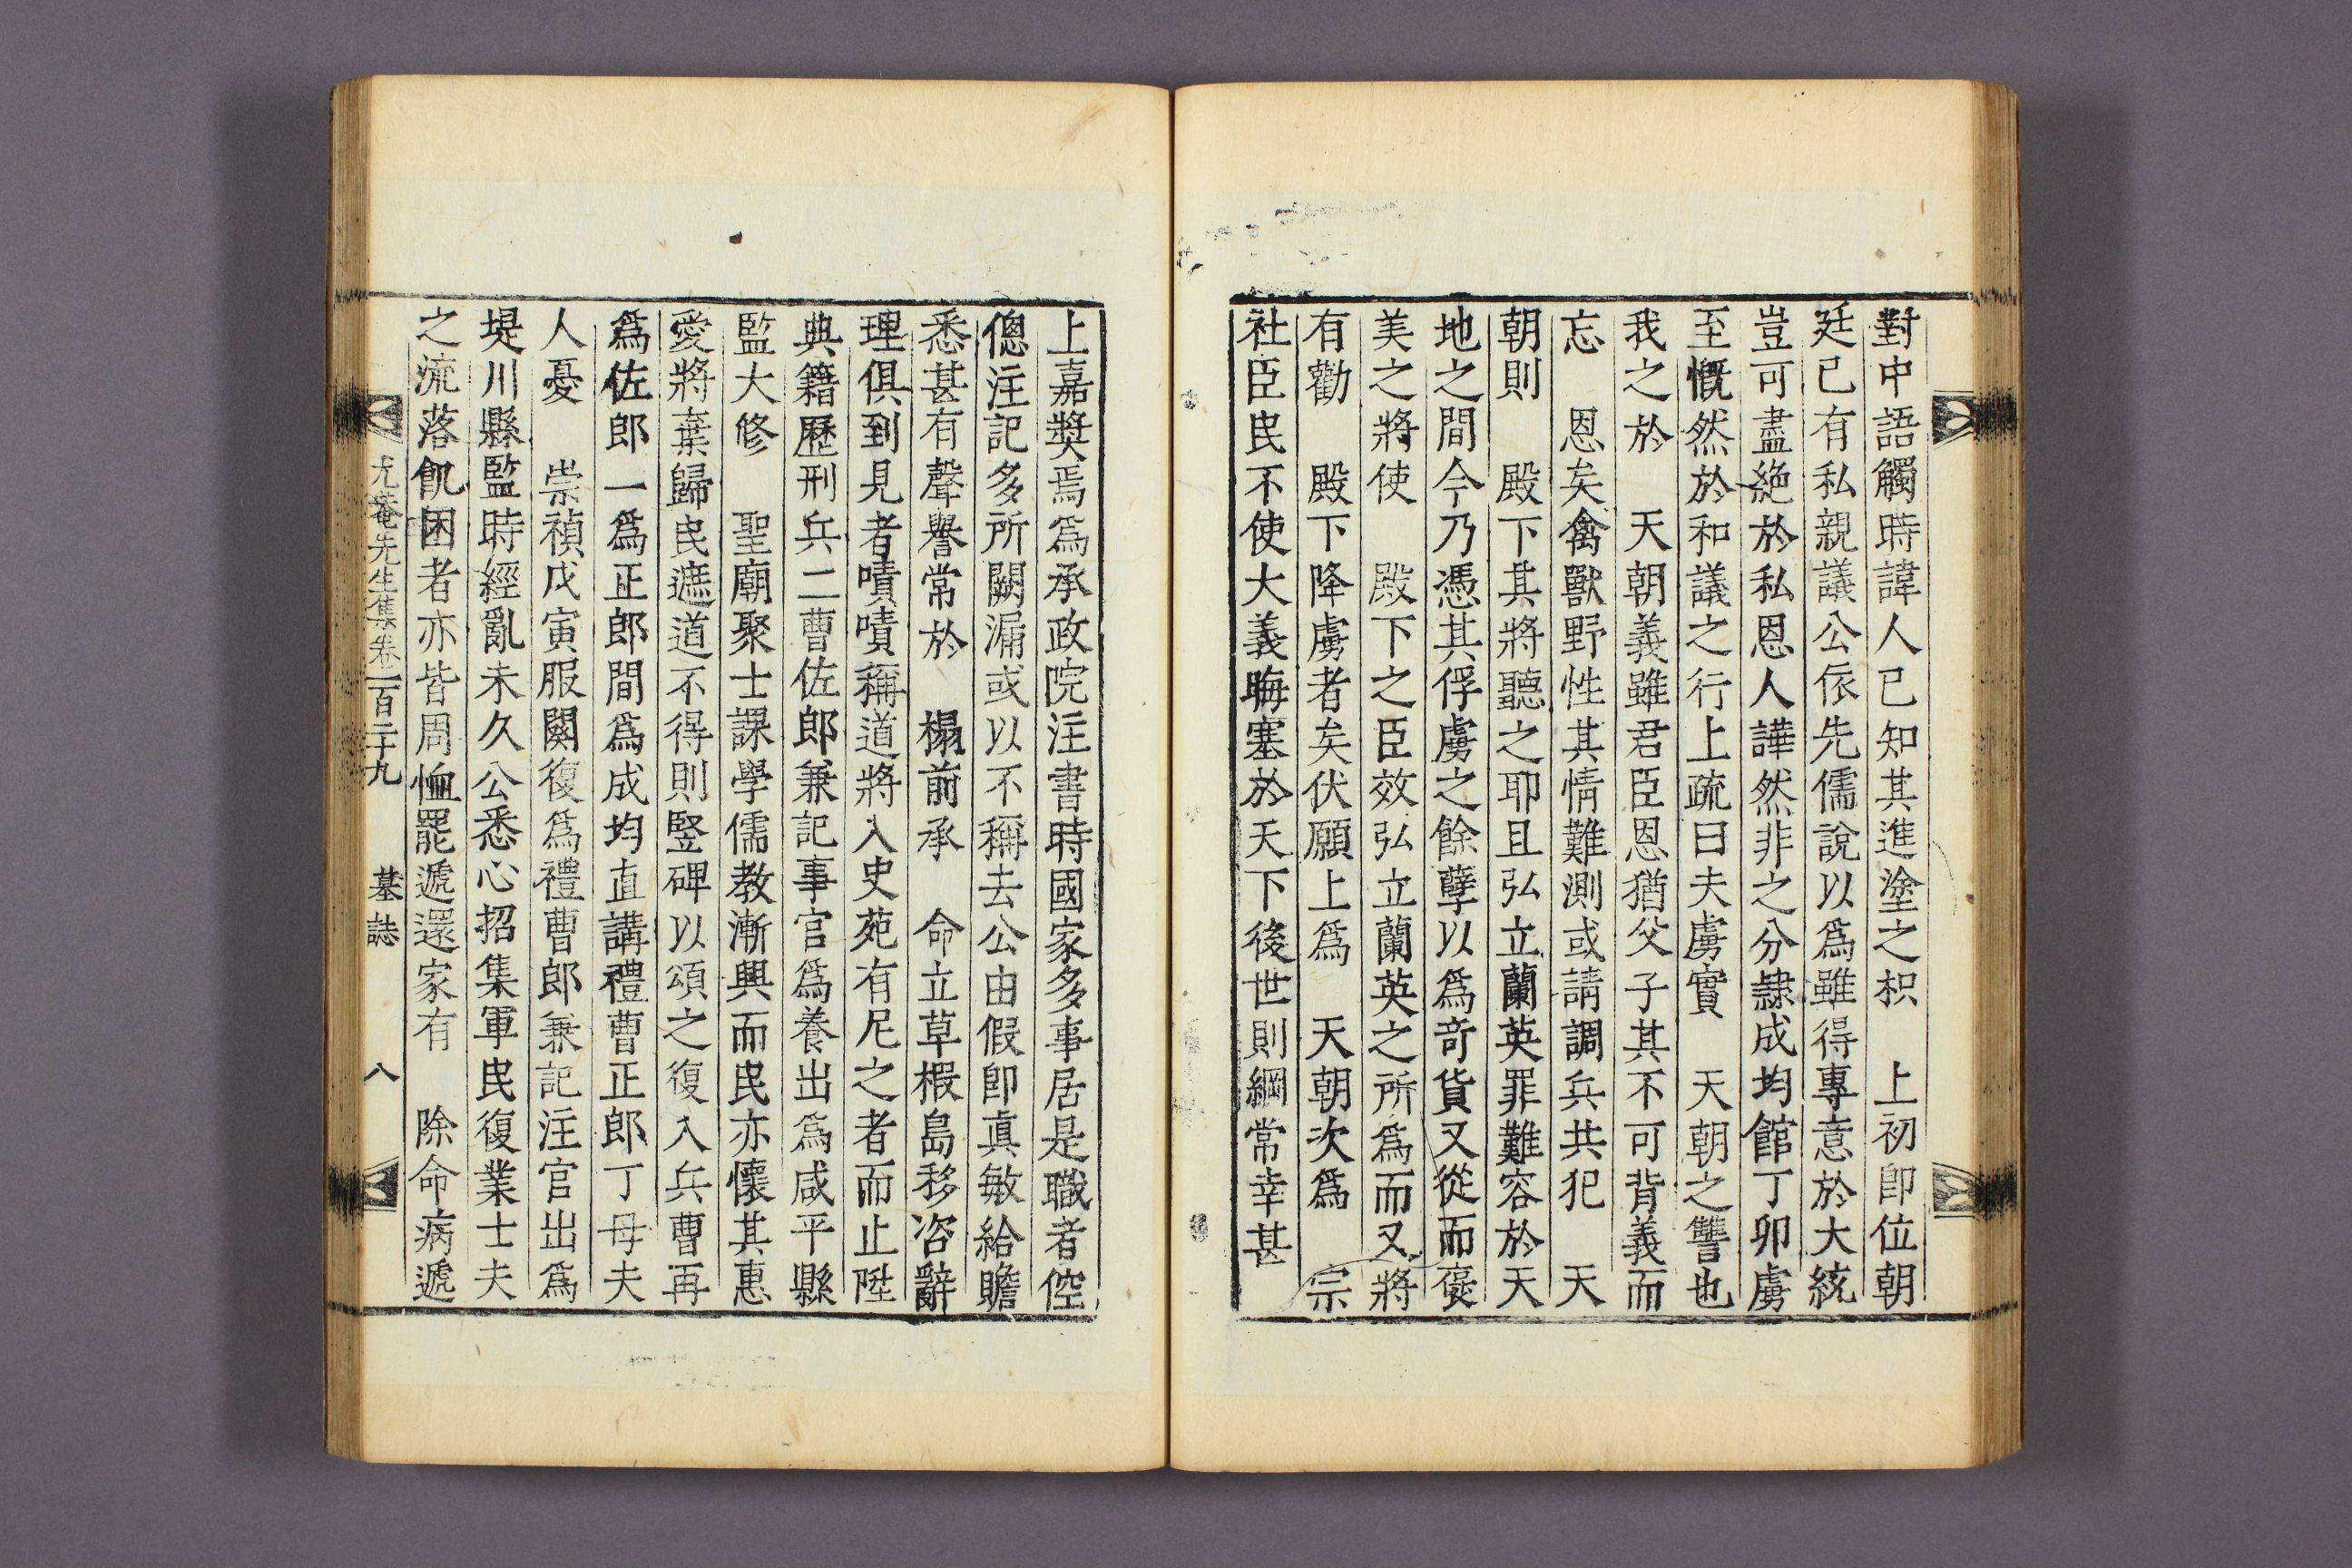 對中語觸時諱人已知其進塗之枳　上初卽位朝
廷已有私親議公依先儒說以爲雖得專意於大統
豈可盡絶於私恩人譁然非之分隷成均館丁卯虜
至慨然於和議之行上疏曰夫虜實　天朝之讐也
我之於　天朝義雖君臣恩猶父子其不可背義而
忘　恩矣禽獸野性其情難測或請調兵共犯　天
朝則　殿下其將聽之耶且弘立蘭英罪難容於天
地之間今乃憑其俘虜之餘孽以爲奇貨又從而褒
美之將使　殿下之臣效弘立蘭英之所爲而又將
有勸　殿下降虜者矣伏願上爲　天朝次爲　宗
社臣民不使大義晦塞於天下後世則綱常幸甚
上嘉奬焉爲承政院注書時國家多事居是職者倥
傯注記多所闕漏或以不稱去公由假卽眞敏給贍
悉甚有聲譽常於　榻前承　命立草椵島移咨辭
理俱到見者嘖嘖稱道將入史苑有尼之者而止陞
典籍歷刑兵二曹佐郎兼記事官爲養出爲咸平縣
監大修　聖廟聚士課學儒教漸興而民亦懷其惠
愛將棄歸民遮道不得則竪碑以頌之復入兵曹再
爲佐郎一爲正郎間爲成均直講禮曹正郎丁母夫
人憂　崇禎戊寅服闋復爲禮曹郎兼記注官出爲
堤川縣監時經亂未久公悉心招集軍民復業士夫
之流落飢困者亦皆周恤罷遞還家有　除命病遞
尤菴先生集卷一百二十九　墓誌　八